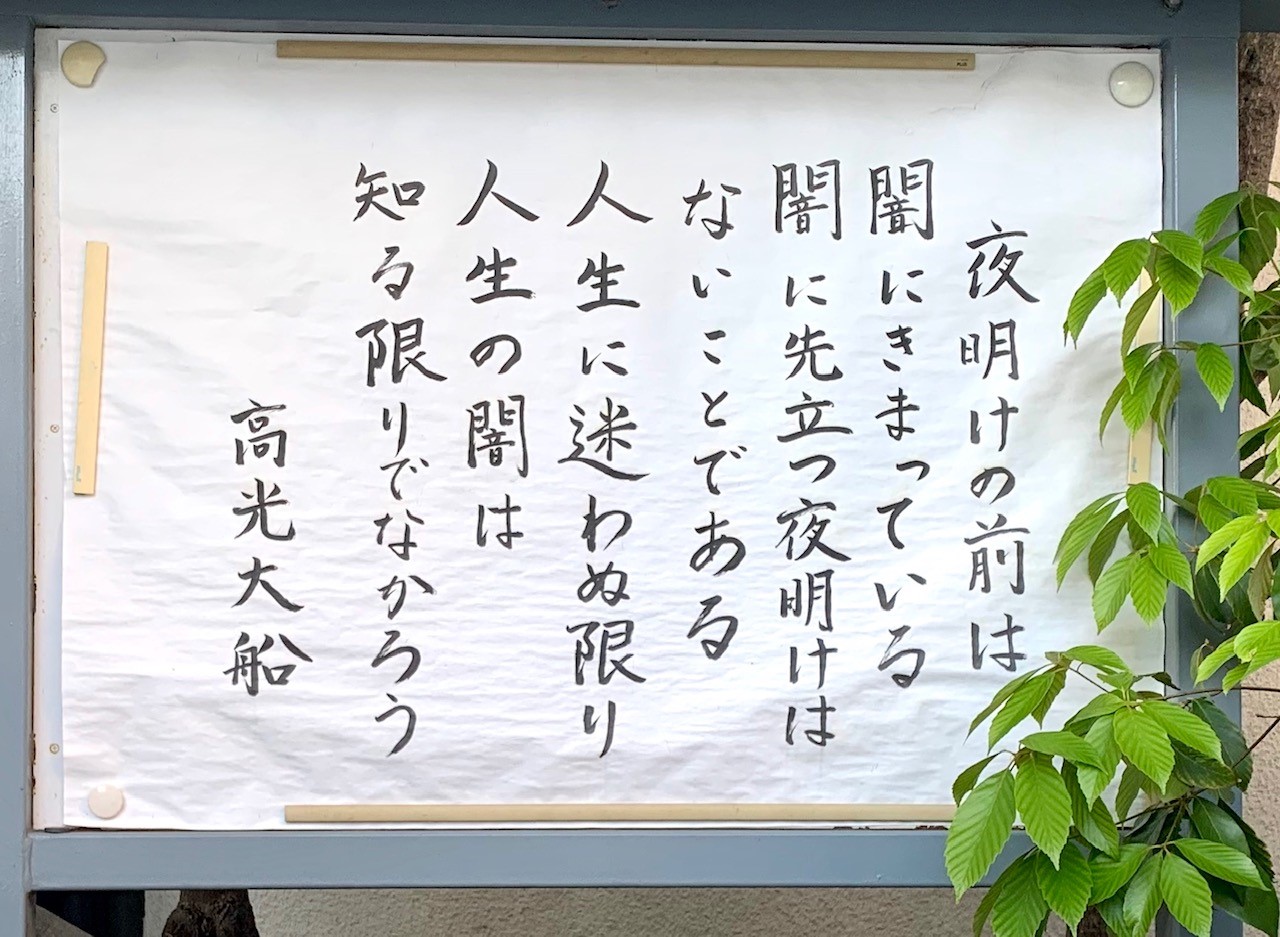 夜明けの前は
闇にきまっている
闇に先立つ夜明けは
ないことである
人生に迷わぬ限り
人生の闇は
知る限りでなかろう
高光大船